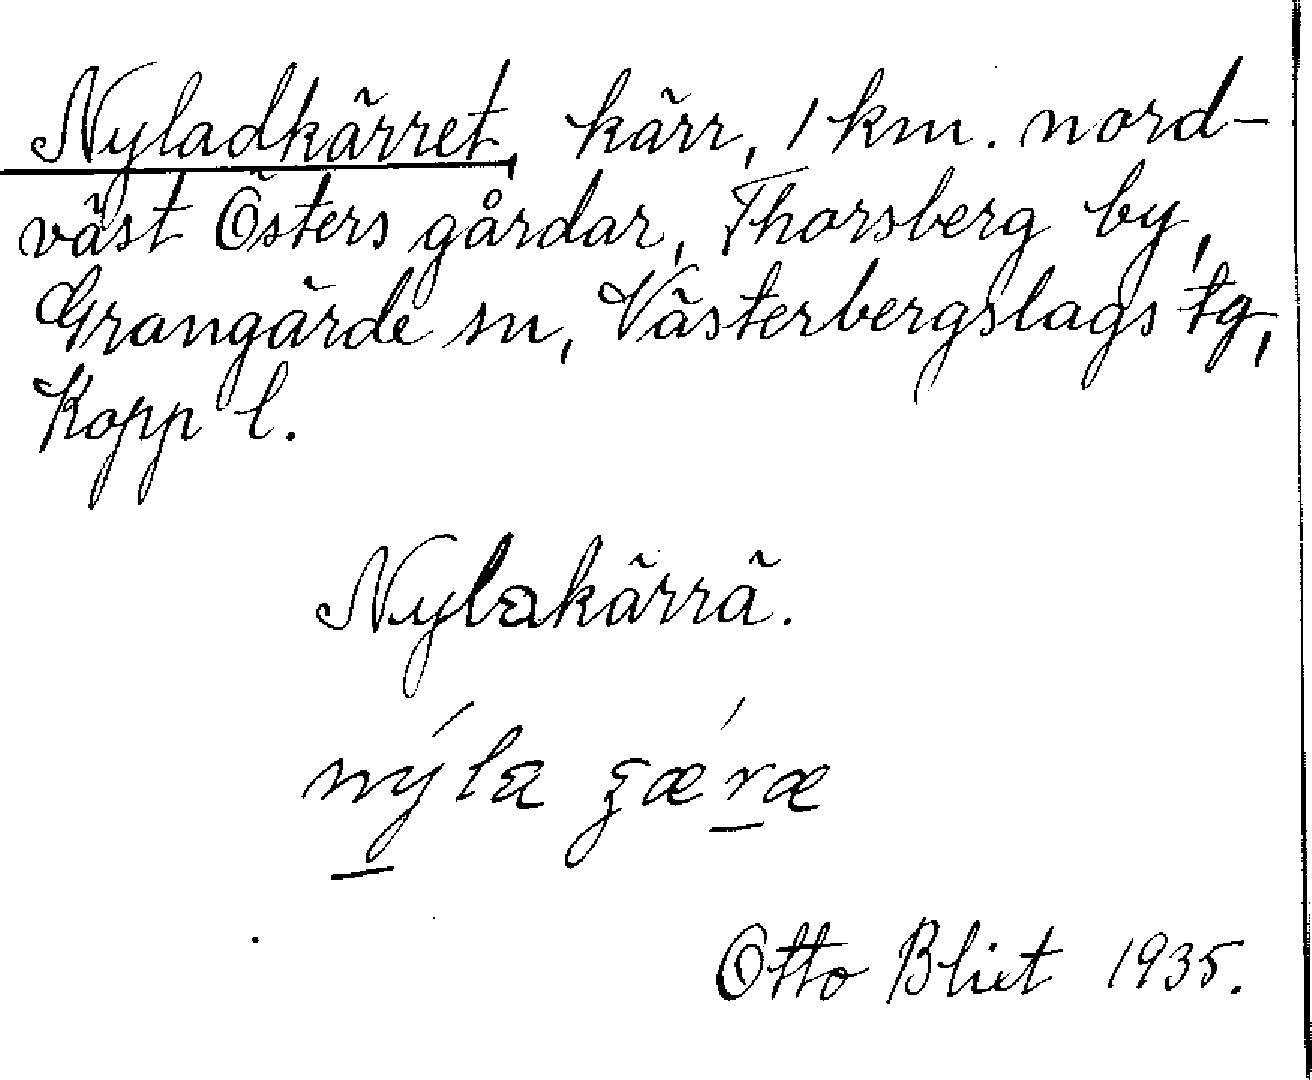 Nyladkärret, kärr, 1 km. nord-
väst Östers gårdar, Thorsberg by,
Grangärde sn, Västerbergslags tg,
Kopp l.
Nylakärrä.
nýla ʒǽræ
Otto Bliet 1935.